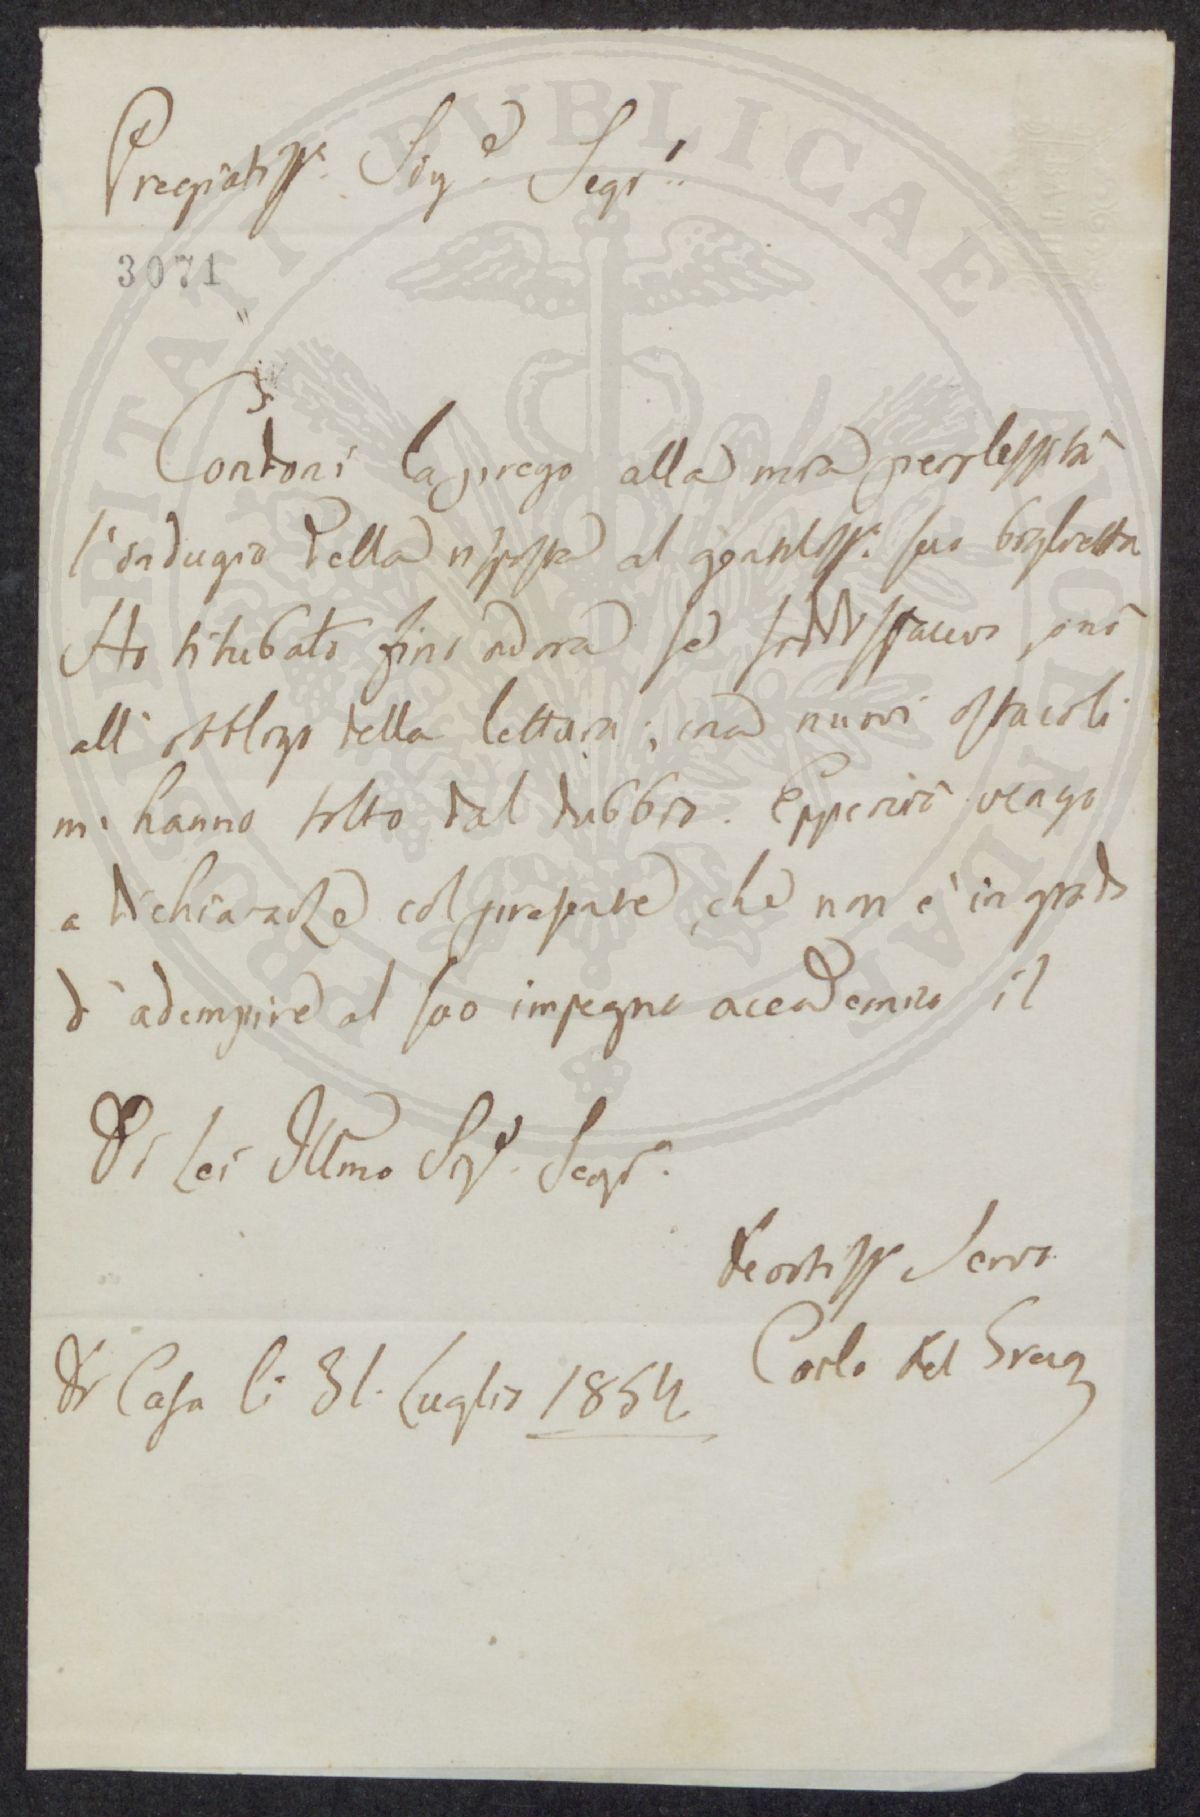 Pregiatiss.e Sig.e Segr.o
3071
Condoni la prego alla mia perplessità
l'indugio della risposta al gentiliss.o suo biglietto
Ho titubato fino adora se soddisfacevo o nò
all'obbligo della lettura; ma nuovi ostacoli
mi hanno tolto dal dubbio. Epperciò vengo
a dichiararle col presente, che non è in grado
d'adempire al suo impegno accademico il
Di Lei Illmo Sig.e Segr.o
Devotiss.o Servo
Carlo del
Di Casa li 31. Luglio 1854
PROSPERITATI PUBLICAE AUGENDAE